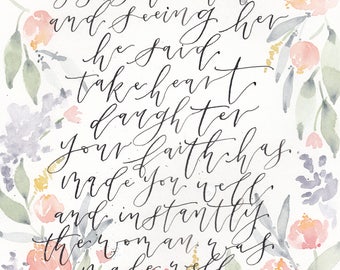 and seeing her
he said
take heart
daughter
your faith has
made you well
and instantly
the woman was
made well